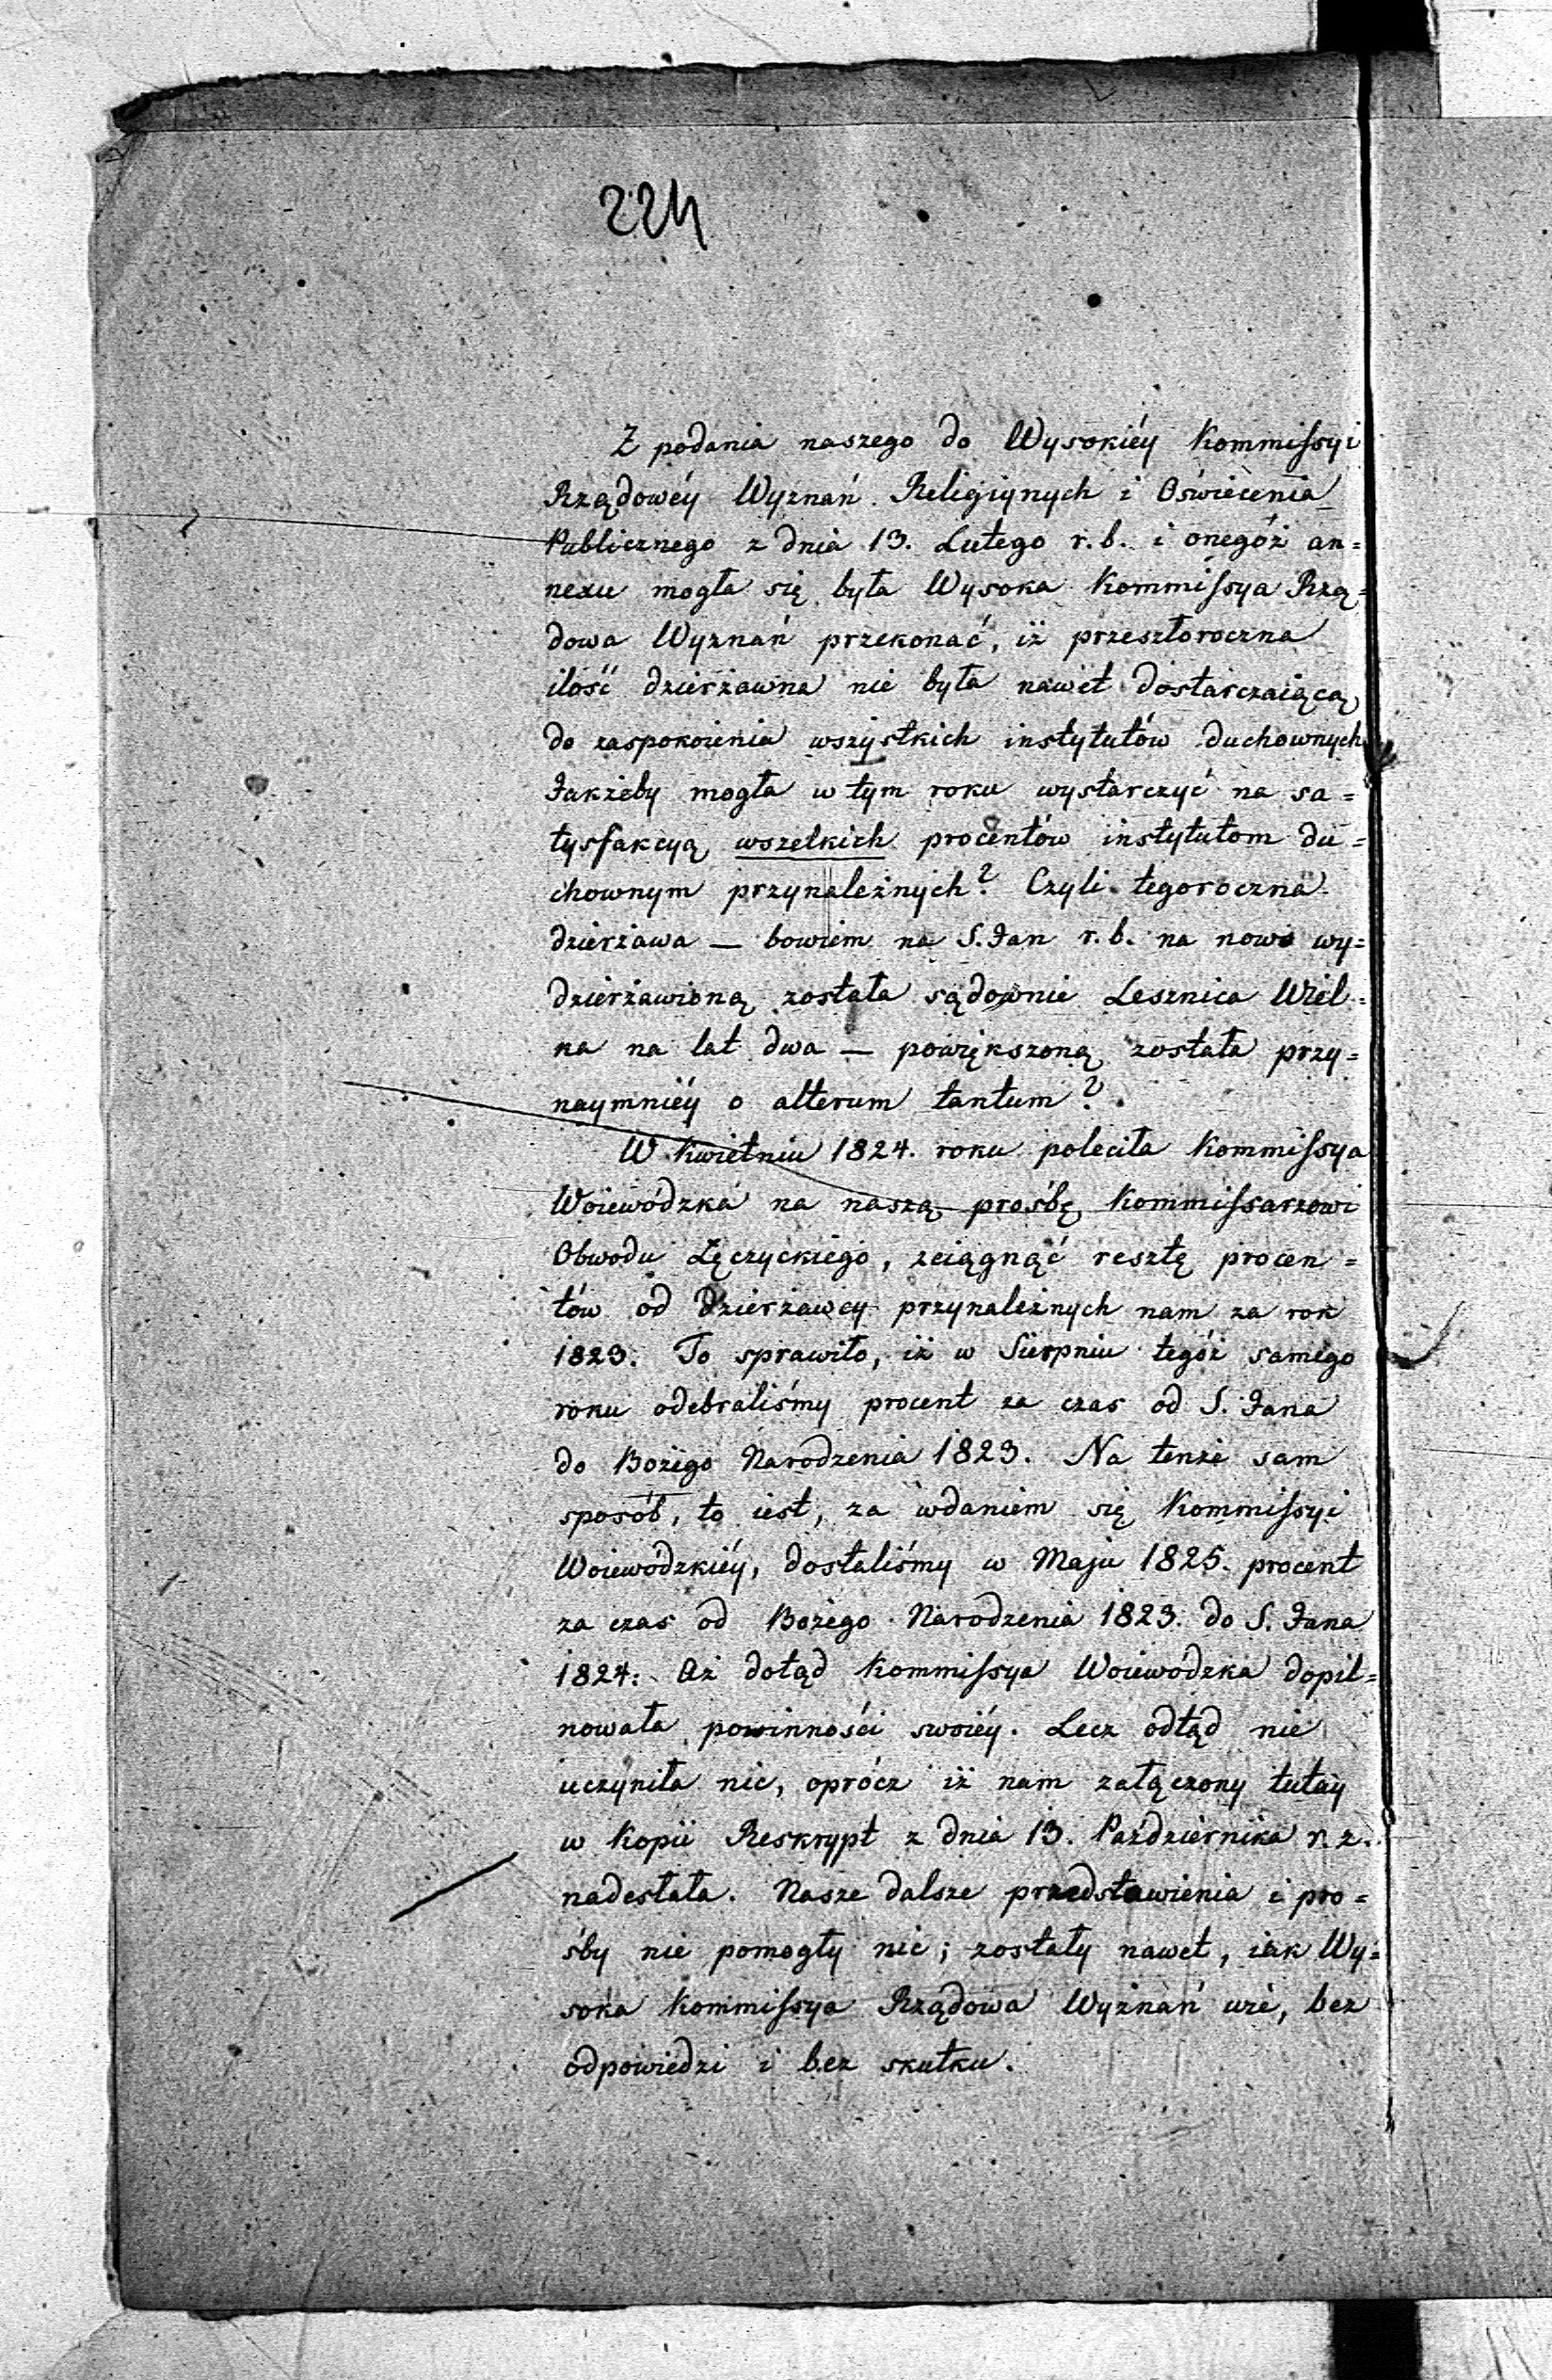 224
Z podania naszego do Wysokiéy Kommissyi
Rządowéy Wyznań Religiynych i Oświecenia
Publicznego z dnia 13. Lutego r. b. i onegóż an=
nexu mogła się była Wysoka Kommissya Rzą=
dowa Wyznań przekonać, iż przeszłoroczna
ilość dzierżawna nie była nawet dostarczaiącą
do zaspokoienia wszystkich instytutów duchownych
Jakżeby mogła w tym roku wystarczyć na sa=
tysfakcyą wszelkich procentów instytutom du=
chownym przynależnych? Czyli tegoroczna
dzierżawa — bowiem na S. Jan r. b. na nowo wy=
dzierżawioną została sądownie Lesznica Wiel=
ka na lat dwa — powiększoną została przy=
naymniéy o alterum tantum?
W Kwietniu 1824. roku poleciła Kommissya
Woiewódzka na naszą prośbę Kommissarzowi
Obwodu Łęczyckiego, zciągnąć resztę procen=
tów od Dzierżawcy przynależnych nam za rok
1823. To sprawiło, iż w Sierpniu tegóż samego
roku odebraliśmy procent za czas od S. Jana
do Bożego Narodzenia 1823. Na tenże sam
sposób, to iest, za wdaniem się Kommissyi
Woiewódzkiéy, dostaliśmy w Maju 1825. procent
za czas od Bożego Narodzenia 1823. do S. Jana
1824. Aż dotąd Kommissya Woiewódzka dopil=
nowała powinności swoiéy. Lecz odtąd nie
uczyniła nic, oprócz iż nam załączony tutay
w Kopii Reskrypt z dnia 13. Października r. z.
nadesłała. Nasze dalsze przedstawienia i pro=
śby nie pomogły nic; zostały nawet, iak Wy=
soka Kommissya Rządowa Wyznań wié, bez
odpowiedzi i bez skutku.